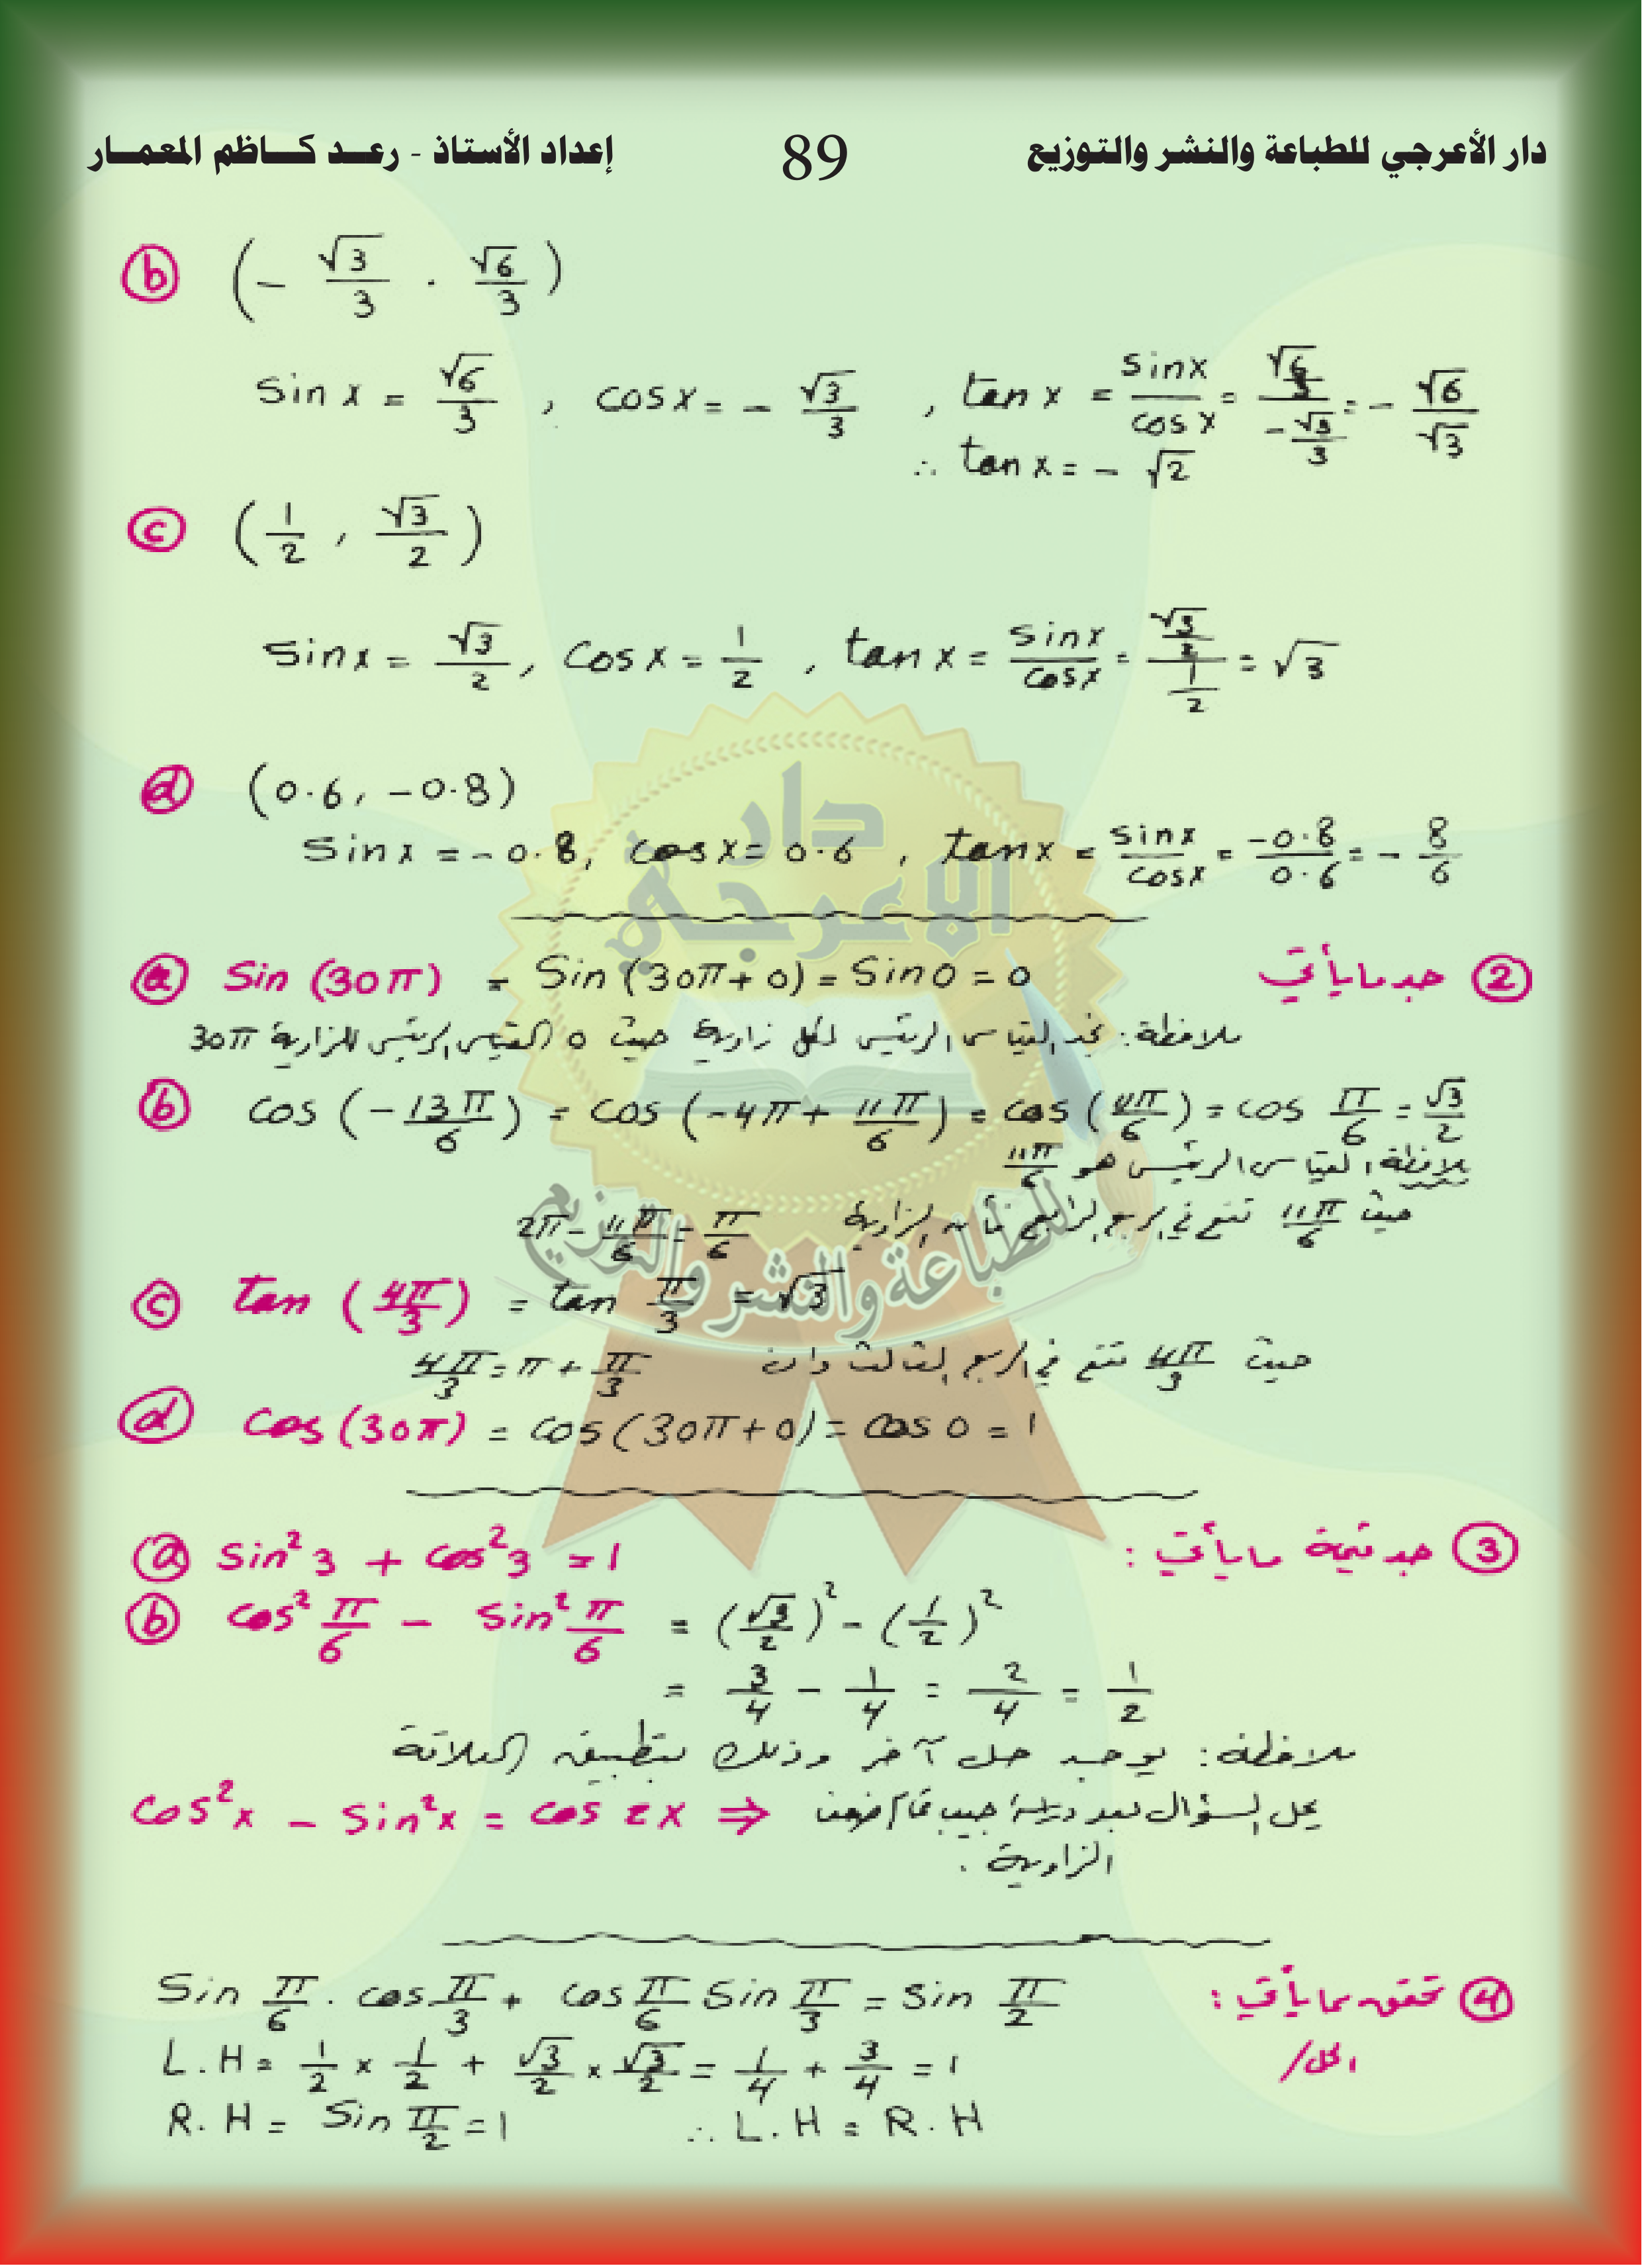 دار الأعرجي للطباعة والنشر والتوزيع 89 إعداد الأستاذ - رعد كاظم المعمار
ⓑ (- √3/3 . √6/3)
sin x = √6/3 , cos x = - √3/3 , tan x = sin x/cos x = (√6/3)/(-√3/3) = - √6/√3
∴ tan x = - √2
ⓒ (1/2 , √3/2)
sin x = √3/2 , cos x = 1/2 , tan x = sin x/cos x = (√3/2)/(1/2) = √3
ⓓ (0.6, -0.8)
sin x = -0.8, cos x = 0.6 , tan x = sin x/cos x = -0.8/0.6 = - 8/6
② جد مايأتي
ⓐ Sin (30π) = Sin (30π + 0) = Sin 0 = 0
ملاحظة: نجد القياس الرئيس لكل زاوية حيث 0 القياس الرئيس للزاوية 30π
ⓑ cos (-13π/6) = cos (-4π + 11π/6) = cos (11π/6) = cos π/6 = √3/2
ملاحظة القياس الرئيس هو 11π/6
حيث 11π/6 تقع في الربع الرابع فأن الزاوية 2π - 11π/6 = π/6
ⓒ tan (4π/3) = tan π/3 = √3
حيث 4π/3 تقع في الربع الثالث وان 4π/3 = π + π/3
ⓓ cos (30π) = cos (30π + 0) = cos 0 = 1
③ جد قيمة مايأتي :
ⓐ sin² 3 + cos² 3 = 1
ⓑ cos² π/6 - sin² π/6 = (√3/2)² - (1/2)²
= 3/4 - 1/4 = 2/4 = 1/2
ملاحظة: يوجد حل آخر وذلك بتطبيق العلاقة
cos² x - sin² x = cos 2x ⇒ يحل السؤال بعد دراسة جيب تمام ضعف
الزاوية .
④ تحقق مما يأتي :
Sin π/6 . cos π/3 + cos π/6 Sin π/3 = Sin π/2
الحل/
L.H = 1/2 × 1/2 + √3/2 × √3/2 = 1/4 + 3/4 = 1
R.H = Sin π/2 = 1 ∴ L.H = R.H
دار
الاعرجي
للطباعة والنشر والتوزيع